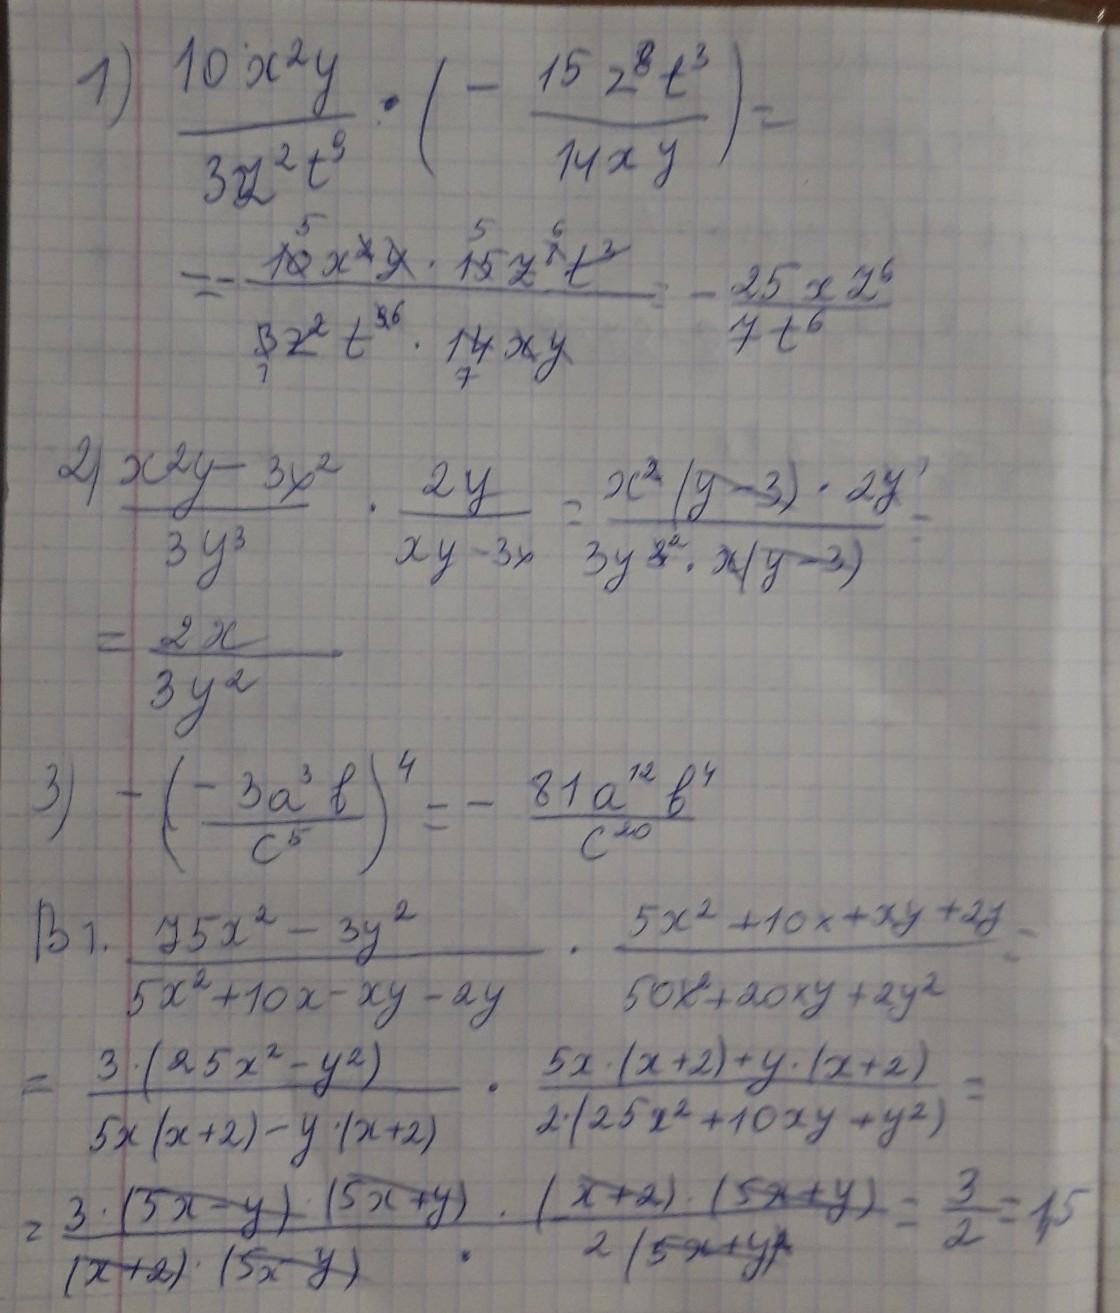 1) 10x²y / 3z²t⁹ · (− 15z⁸t³ / 14xy) =
= − 10x²y · 15z⁸t³ / 3z²t⁹ · 14xy = − 25xz⁶ / 7t⁶
2) x2y − 3x² / 3y³ · 2y / xy − 3x = x²(y − 3) · 2y / 3y³ · x(y − 3) =
= 2x / 3y²
3) − (− 3a³b / c⁵)⁴ = − 81a¹²b⁴ / c²⁰
B1. 75x² − 3y² / 5x² + 10x − xy − 2y · 5x² + 10x + xy + 2y / 50x² + 20xy + 2y² =
= 3·(25x² − y²) / 5x(x+2) − y·(x+2) · 5x·(x+2) + y·(x+2) / 2·(25x² + 10xy + y²) =
= 3·(5x − y)·(5x + y) / (x+2)·(5x − y) · (x+2)·(5x+y) / 2(5x+y)² = 3/2 = 1,5